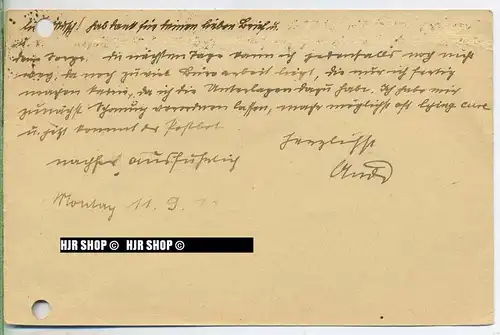 Hab Dank für Deinen lieben Brief u.
Deine Sorge. Die nächsten Tage kann ich jedenfalls noch nicht
weg, da noch zuviel Büroarbeit liegt, die nur ich fertig
machen kann, da ich die Unterlagen dazu habe. Ich habe mich
zunächst Schonung verordnen lassen, mache möglichst oft
u. jetzt kommt der Postbot.
Herzlichst
nachher ausführlich
Montag 11. 9.
HJR SHOP © HJR SHOP ©